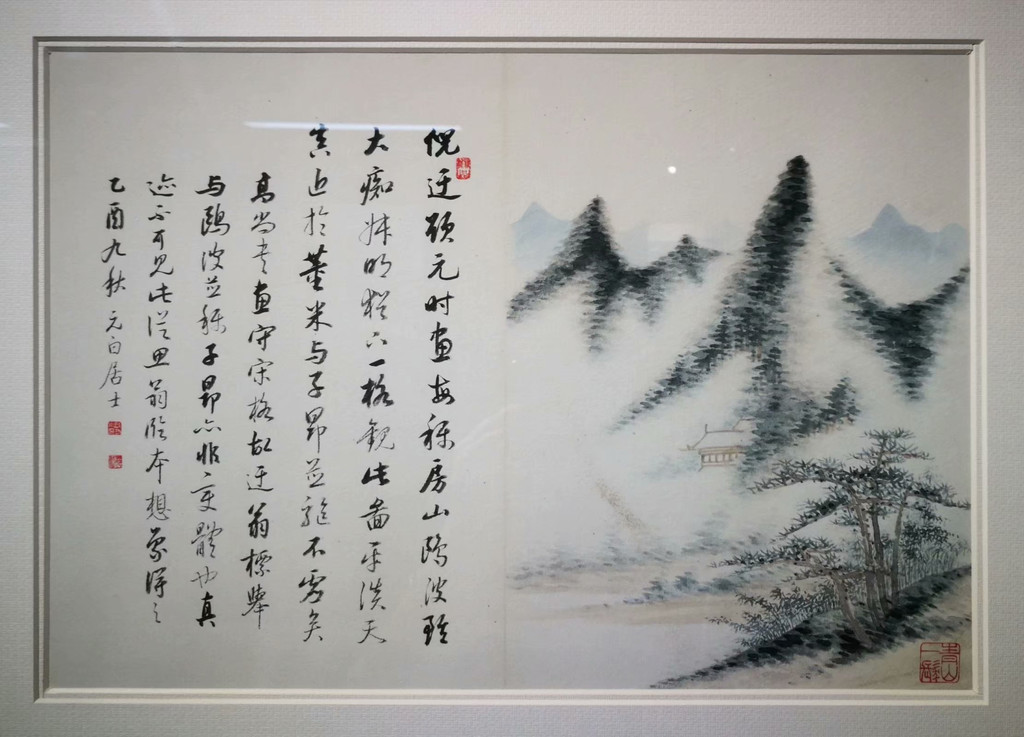 倪迂题元时画每称房山鷗波雖
大痴叔明猶一格觀此畫平淡天
真近於董米与子昂並驅不虛矣
高尚書画守宋格故迂翁標舉
与鷗波並稱子昂亦非變體也真
迹不可見此從思翁臨本想象得之
乙酉九秋元白居士